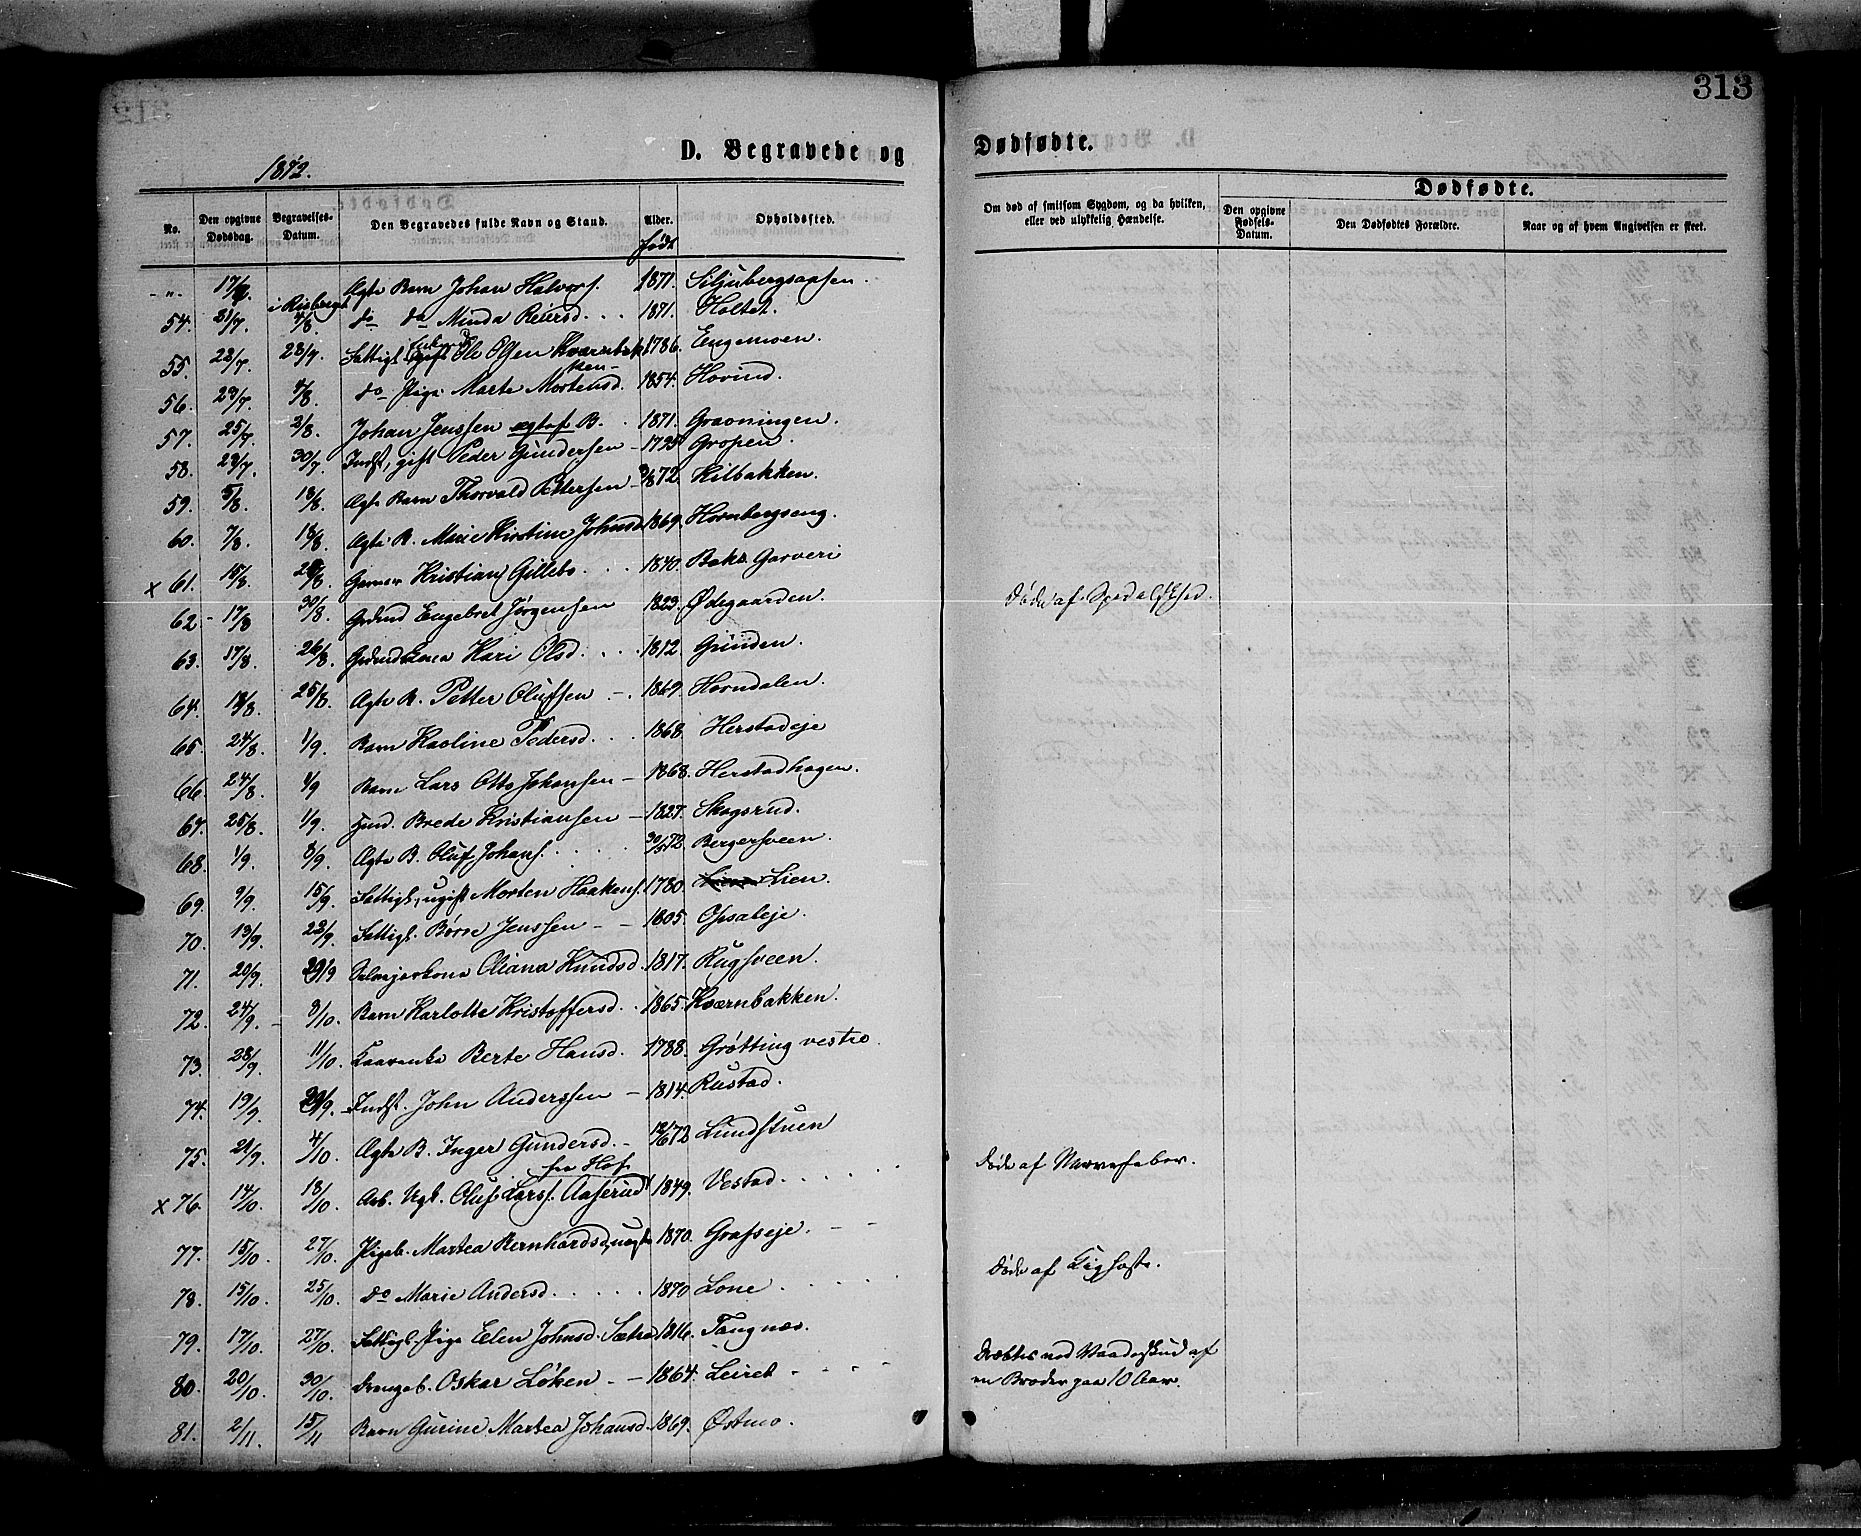 313
D. Begravede og
Dødfødte.
1872.
No.
Den opgivne Dødsdag.
Begravelses-Datum.
Den Begravedes fulde Navn og Stand.
Alder.
født
Opholdssted.
Om død af smitsom Sygdom, og da hvilken, eller ved ulykkelig Hændelse.
Dødfødte.
Den opgivne Fødsels-Datum.
Den Dødfødtes Forældre.
Naar og af hvem Angivelsen er skeet.
-"- Ægte Barn Johan Halvors. 1871. Siljubergsaasen.
54. 21/7. i Risberget 4/8. do do Minda Reiersd. 1871. Holtet.
55. 22/7. 28/7. Fattigl. Ole Olsen Kværnbakken 1786. Engemoen.
56. 23/7. 4/8. do Pige Marte Mortensd. 1854. Hovind.
57. 25/7. 2/8. Johan Jenssen ægtef B. 1871. Gravningen.
58. 28/7. 30/7. Indst, gift Peder Gundersen 1795 Gropen.
59. 5/8. 18/8. Ægte Barn Thorvald Pettersen 3/8 72. Kilbakken.
60. 7/8. 18/8. Ægte B. Marie Kirstine Johnsd. 1869. Hornbergseng.
x 61. 15/8. Garver Kristian Gillebo. 1840. Baks Garveri
62 - 17/8 30/8. Grdmd Engebret Jørgensen 1823. Ødegaarden. Døde af Spedalskhed.
63. 17/8. 26/8. Grdmdkona Kari Olsd. 1812. Grinden.
64. 18/8. 25/8. Ægte B. Petter Olufsen 1869. Horndalen.
65. 24/8. 1/9. Barn Karoline Pedersd. 1868. Herstadeje
66. 24/8. 1/9 Barn Lars Otto Johansen 1868. Herstadhagen.
67. 25/8. 1/9. Husmd. Brede Kristiansen 1827. Skogsrud.
68. 1/9. 8/9. Ægte B. Oluf Johans. 30/5 72 Bergersveen.
69. 9/9. 15/9. Fattigl., ugift Morten Haakens. 1780. Lien.
70. 13/9. 22/9. Fattigl. Børre Jenssen 1805. Opsaleje.
71. 20/9. 29/9 Selvejerkone Oliana Knudsd. 1817. Rugsveen.
72. 24/9. 3/10. Barn Karlotte Kristoffersd. 1865. Kværnbakken.
73. 28/9. 11/10. Kaarenke Berte Hansd. 1788. Grøtting vestre.
74. 19/9. 29/9. Indst. John Anderssen 1814. Rustad.
75. 21/9. 4/10. Ægte B. Inger Gundersd. 12/6 72 Lundstuen
x 76. 14/10. 18/10. Arb. Ugk. Oluf Lars. Aaserud fra Hof 1849. Vestad. Døde af Nervefeber.
77. 15/10. 27/10. Pigeb. Martea Bernhardsd, uægte 1870. Grafseje.
78. 15/10. 25/10. do Marie Andersd. 1870 Lone. Døde af Kighoste.
79. 17/10. 27/10. Fattigl. Pige Elen Johnsd. Sætre 1816. Tangnæs.
80. 20/10. 30/10. Drengeb. Oskar Løken. 1864. Leiret Dræbtes ved Vaadeskud af
en Broder paa 10 Aar.
81. 2/11. 15/11 Barn Gurine Martea Johansd. 1869. Østmo.